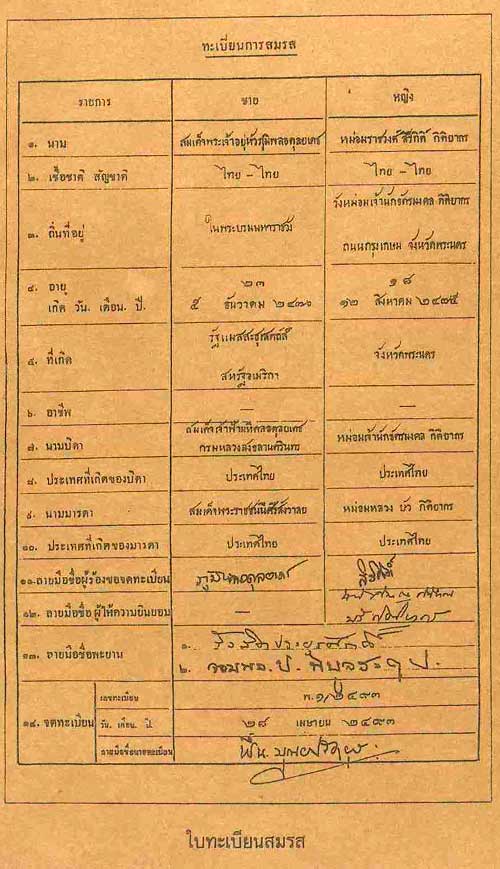 ทะเบียนการสมรส
รายการ ชาย หญิง
๑. นาม สมเด็จพระเจ้าอยู่หัวภูมิพลอดุลยเดช หม่อมราชวงศ์ สิริกิติ์ กิติยากร
๒. เชื้อชาติ สัญชาติ ไทย - ไทย ไทย - ไทย
๓. ถิ่นที่อยู่ ในพระบรมมหาราชวัง วังหม่อมเจ้านักขัตรมงคล กิติยากร
ถนนกรุงเกษม จังหวัดพระนคร
๔. อายุ ๒๓ ๑๘
เกิด วัน. เดือน. ปี. ๕ ธันวาคม ๒๔๗๐ ๑๒ สิงหาคม ๒๔๗๕
๕. ที่เกิด รัฐแมสสะชูเสตส์ จังหวัดพระนคร
สหรัฐอเมริกา
๖. อาชีพ —
๗. นามบิดา สมเด็จเจ้าฟ้ามหิดลอดุลยเดช หม่อมเจ้านักขัตรมงคล กิติยากร
กรมหลวงสงขลานครินทร์
๘. ประเทศที่เกิดของบิดา ประเทศไทย ประเทศไทย
๙. นามมารดา สมเด็จพระราชชนนีศรีสังวาลย์ หม่อมหลวง บัว กิติยากร
๑๐. ประเทศที่เกิดของมารดา ประเทศไทย ประเทศไทย
๑๑. ลายมือชื่อผู้ร้องขอจดทะเบียน ภูมิพลอดุลยเดช สิริกิติ์
๑๒. ลายมือชื่อ ผู้ให้ความยินยอม —
๑๓. ลายมือชื่อพะยาน ๑. รังสิตประยูรศักดิ์
๒. จอมพล ป. พิบูลสงคราม
๑๔. จดทะเบียน เลขทะเบียน พ.๑/๒๔๙๓
วัน. เดือน. ปี. ๒๘ เมษายน ๒๔๙๓
ลายมือชื่อนายทะเบียน ฟื้น บุณยปรัตยุธ
ใบทะเบียนสมรส